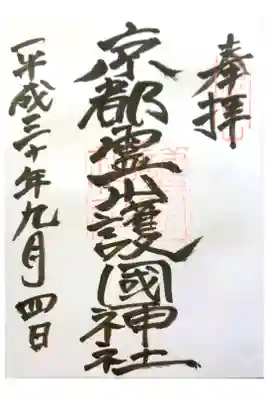 奉拝
京都霊山護國神社
平成三十年九月四日